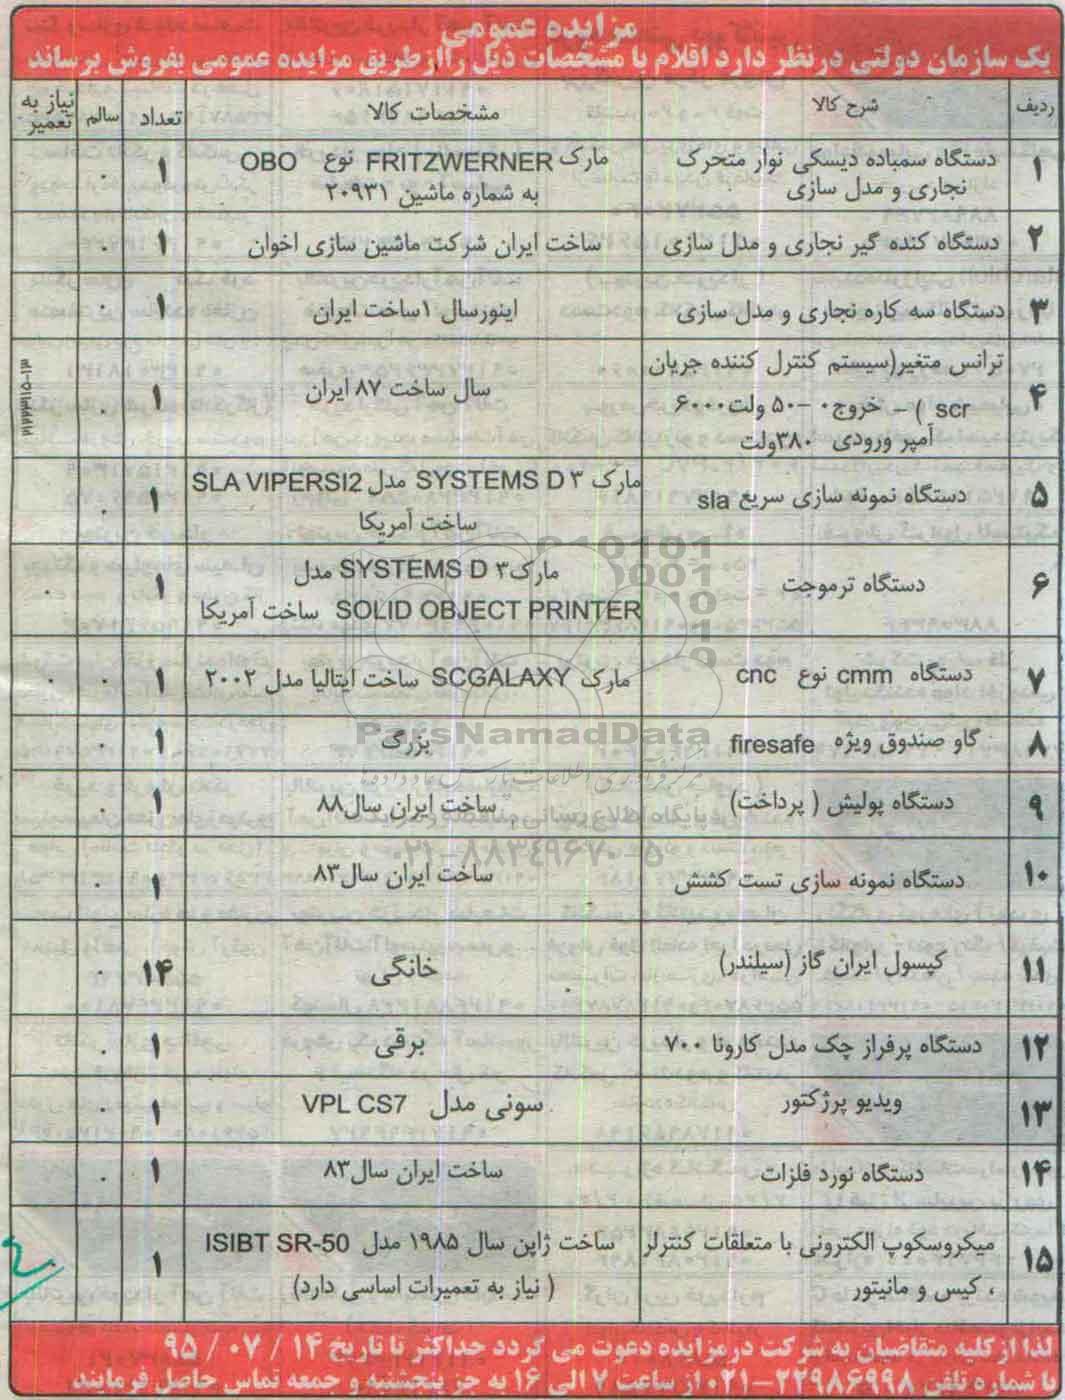 مزایده عمومی
یک سازمان دولتی درنظر دارد اقلام با مشخصات ذیل را ازطریق مزایده عمومی بفروش برساند
ردیف شرح کالا مشخصات کالا تعداد سالم نیاز به تعمیر
۱ دستگاه سمباده دیسکی نوار متحرک مارک FRITZWERNER نوع OBO ۱ .
نجاری و مدل سازی به شماره ماشین ۲۰۹۳۱
۲ دستگاه کنده گیر نجاری و مدل سازی ساخت ایران شرکت ماشین سازی اخوان ۱ .
۳ دستگاه سه کاره نجاری و مدل سازی اینورسال ۱ساخت ایران ۱ .
۴ ترانس متغیر(سیستم کنترل کننده جریان سال ساخت ۸۷ ایران ۱ .
scr ) – خروج۰ –۵۰ ولت۶۰۰۰
آمپر ورودی ۳۸۰ولت
۵ دستگاه نمونه سازی سریع sla مارک SYSTEMS D ۳ مدل SLA VIPERSI2 ۱ .
ساخت آمریکا
۶ دستگاه ترموجت مارک۳ SYSTEMS D مدل ۱ .
SOLID OBJECT PRINTER ساخت آمریکا
۷ دستگاه cmm نوع cnc مارک SCGALAXY ساخت ایتالیا مدل ۲۰۰۲ ۱ . .
۸ گاو صندوق ویژه firesafe بزرگ ۱
۹ دستگاه پولیش ( پرداخت) ساخت ایران سال۸۸ ۱ .
۱۰ دستگاه نمونه سازی تست کشش ساخت ایران سال۸۳ ۱ .
۱۱ کپسول ایران گاز (سیلندر) خانگی ۱۴ .
۱۲ دستگاه پرفراژ چک مدل کارونا ۷۰۰ برقی ۱ .
۱۳ ویدیو پرژکتور سونی مدل VPL CS7 ۱ .
۱۴ دستگاه نورد فلزات ساخت ایران سال۸۳ ۱ .
۱۵ میکروسکوپ الکترونی با متعلقات کنترلر ساخت ژاپن سال ۱۹۸۵ مدل ISIBT SR-50 ۱
، کیس و مانیتور ( نیاز به تعمیرات اساسی دارد)
لذا از کلیه متقاضیان به شرکت درمزایده دعوت می گردد حداکثر تا تاریخ ۱۴ / ۰۷ / ۹۵
با شماره تلفن ۲۲۹۸۶۹۹۸–۰۲۱ از ساعت ۷ الی ۱۶ به جز پنجشنبه و جمعه تماس حاصل فرمایند
ParsNamadData
مرکز فرآوری اطلاعات پارس نماد داده ها
۰۲۱–۸۸۳۴۹۶۷۰–۵